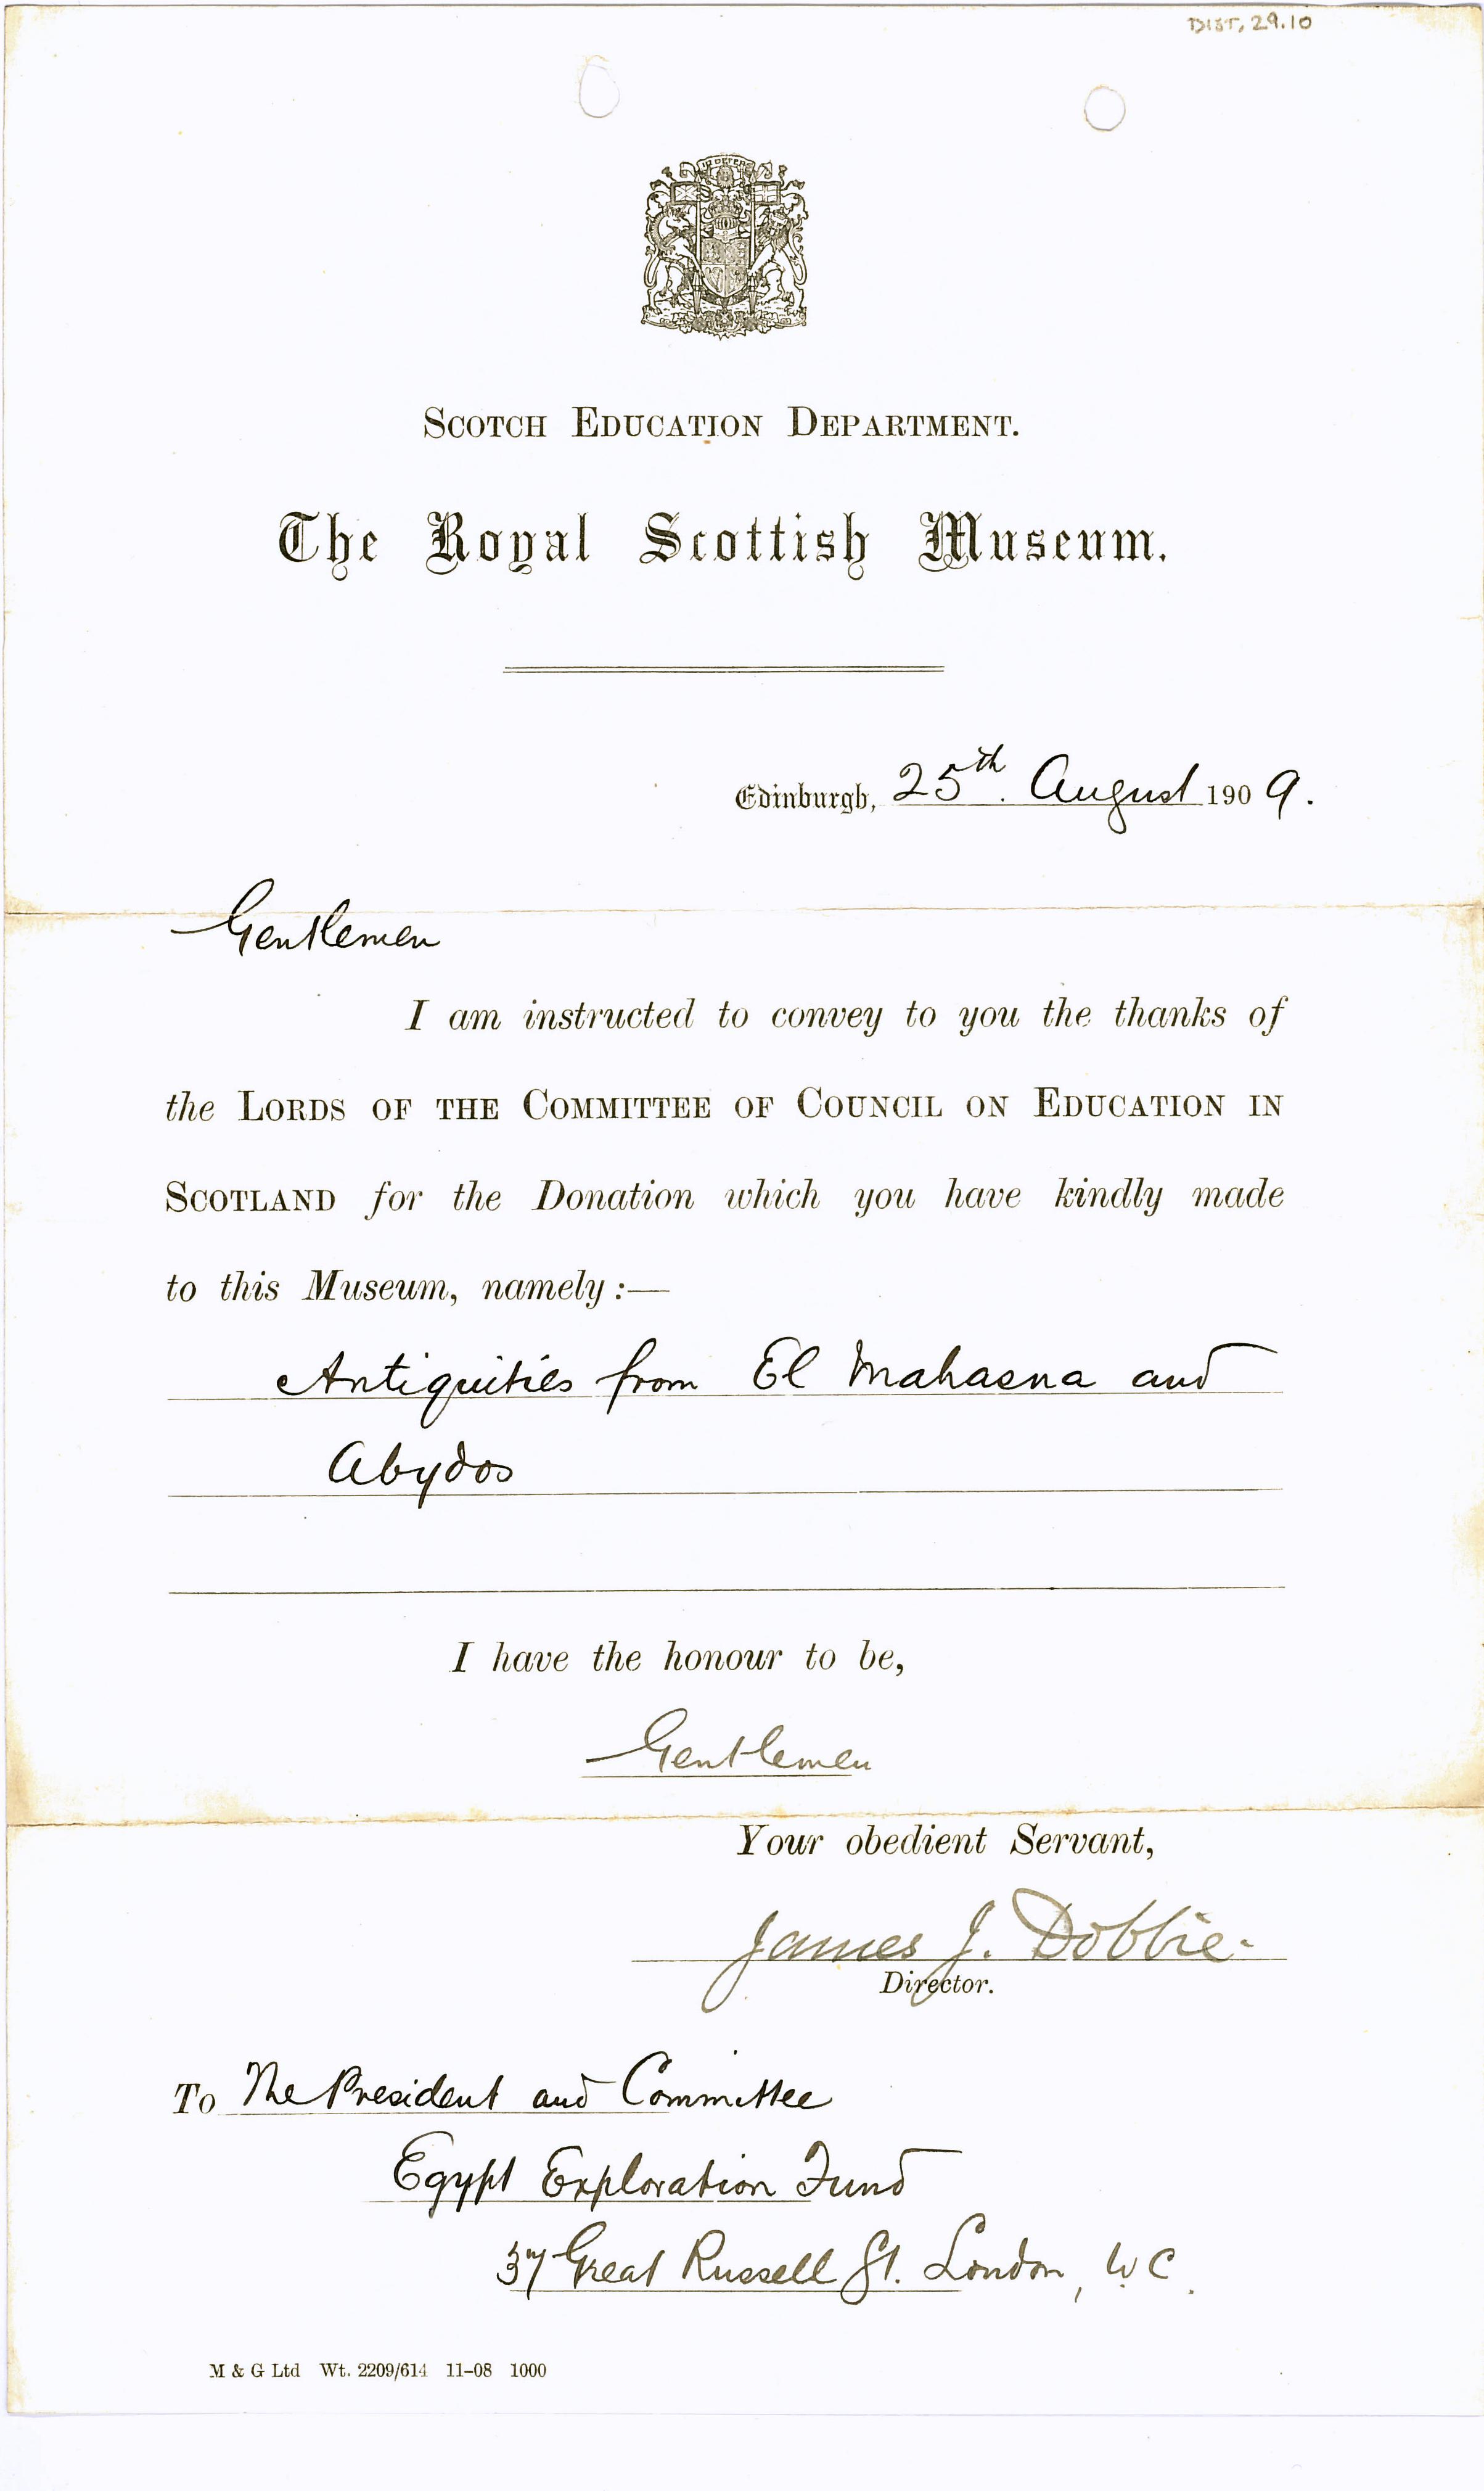 DIST, 29.10
IN DEFENS
SCOTCH EDUCATION DEPARTMENT.
The Royal Scottish Museum.
Edinburgh, 25th. August 1909.
Gentlemen
I am instructed to convey to you the thanks of
the LORDS OF THE COMMITTEE OF COUNCIL ON EDUCATION IN
SCOTLAND for the Donation which you have kindly made
to this Museum, namely:—
Antiquities from El Mahasna and
Abydos
I have the honour to be,
Gentlemen
Your obedient Servant,
James J. Dobbie.
Director.
To The President and Committee
Egypt Exploration Fund
37 Great Russell St. London, W.C.
M & G Ltd Wt. 2209/614 11-08 1000